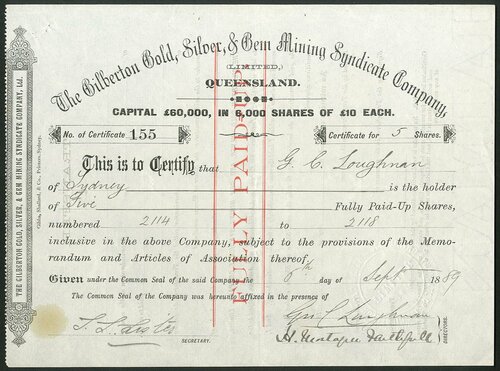 The Gilberton Gold, Silver, & Gem Mining Syndicate Company,
(LIMITED,)
QUEENSLAND.
CAPITAL £60,000, IN 6,000 SHARES OF £10 EACH.
No. of Certificate 155
Certificate for 5 Shares.
This is to Certify that G. C. Loughnan
of Sydney is the holder
of Five Fully Paid-Up Shares,
numbered 2114 to 2118
inclusive in the above Company, subject to the provisions of the Memo-
randum and Articles of Association thereof.
Given under the Common Seal of the said Company the day of Sept 1889
The Common Seal of the Company was hereunto affixed in the presence of
Loughnan
H. Montague Faithfull
SECRETARY.
DIRECTORS.
FULLY PAID-UP.
THE GILBERTON GOLD, SILVER, & GEM MINING SYNDICATE COMPANY, Ltd.
Gibbs, Shallard, & Co., Printers, Sydney.